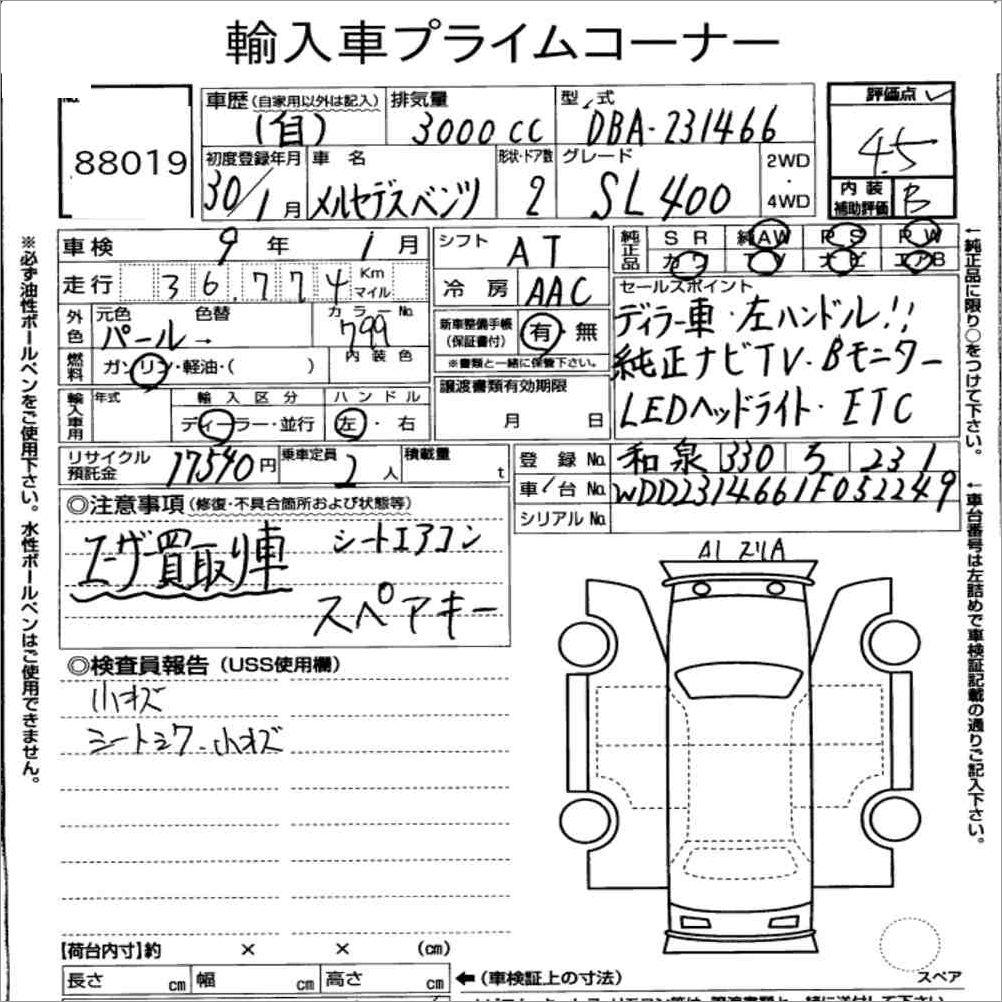 輸入車プライムコーナー
88019
車歴(自家用以外は記入) 排気量 型式 評価点
(自) 3000cc DBA-231466 4.5
初度登録年月 車名 形状・ドア数 グレード 2WD・4WD 内装補助評価
30/1月 メルセデスベンツ 2 SL400 B
車検 9年 1月 シフト AT 純正品 SR 純AW PS PW
走行 36.774 Km マイル 冷房 AAC カワ TV ナビ エアB
外色 元色 色替 カラーNo. 新車整備手帳(保証書付) 有・無 セールスポイント
パール→ 799 ※書類と一緒に保管下さい。 ディラー車・左ハンドル!!
燃料 ガソリン・軽油・( ) 内装色 純正ナビTV・Bモニター
輸入車用 年式 輸入区分 ハンドル 譲渡書類有効期限 LEDヘッドライト・ETC
ディーラー・並行 左・右 月 日
リサイクル預託金 17540円 乗車定員 2人 積載量 t 登録No. 和泉 330 ろ 231
車台No. WDD2314661F052249
シリアルNo.
◎注意事項(修復・不具合箇所および状態等)
ユーザー買取り車 シートエアコン
スペアキー
A1 スリA
◎検査員報告(USS使用欄)
小キズ
シートシワ・小キズ
【荷台内寸】約 × × (cm)
長さ cm 幅 cm 高さ cm ←(車検証上の寸法)
スペア
※必ず油性ボールペンをご使用下さい。水性ボールペンはご使用できません。
←純正品に限り○をつけて下さい。
←車台番号は左詰めで車検証記載の通りご記入下さい。